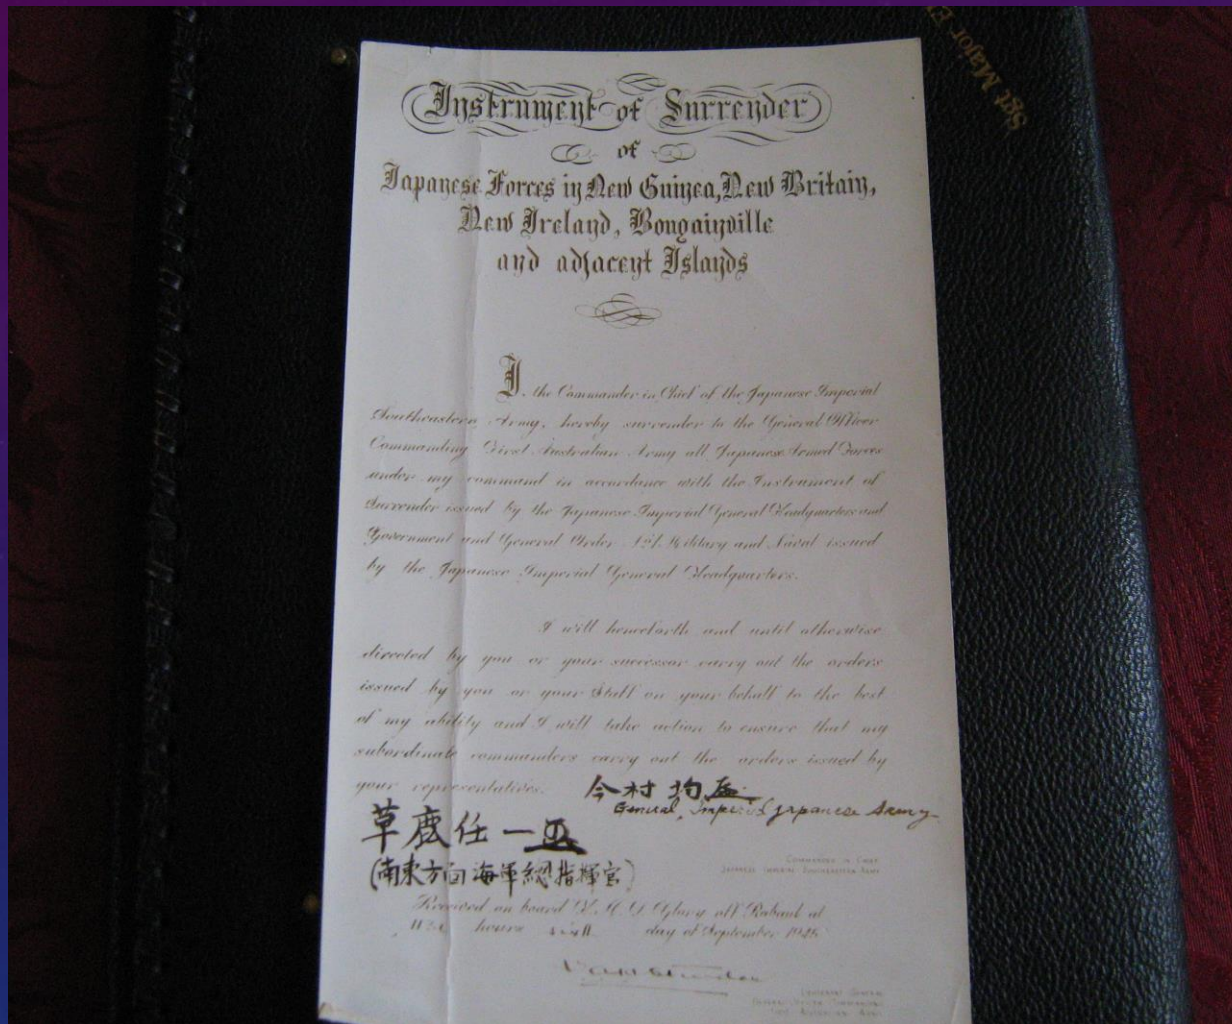 Sgt Major
Instrument of Surrender
of
Japanese Forces in New Guinea, New Britain,
New Ireland, Bougainville
and adjacent Islands
I, the Commander in Chief of the Japanese Imperial
Southeastern Army, hereby surrender to the General Officer
Commanding First Australian Army all Japanese Armed Forces
under my command in accordance with the Instrument of
Surrender issued by the Japanese Imperial General Headquarters and
Government and General Order No. 1. Military and Naval issued
by the Japanese Imperial General Headquarters.
I will henceforth and until otherwise
directed by you or your successor carry out the orders
issued by you or your Staff on your behalf to the best
of my ability and I will take action to ensure that my
subordinate commanders carry out the orders issued by
your representatives.
今村均
General, Imperial Japanese Army
草鹿任一
(南東方面海軍總指揮官)
Commander in Chief
Japanese Imperial Southeastern Army
Received on board H. M. S. Glory off Rabaul at
hours day of September 1945
Lieutenant General
General Officer Commanding
First Australian Army